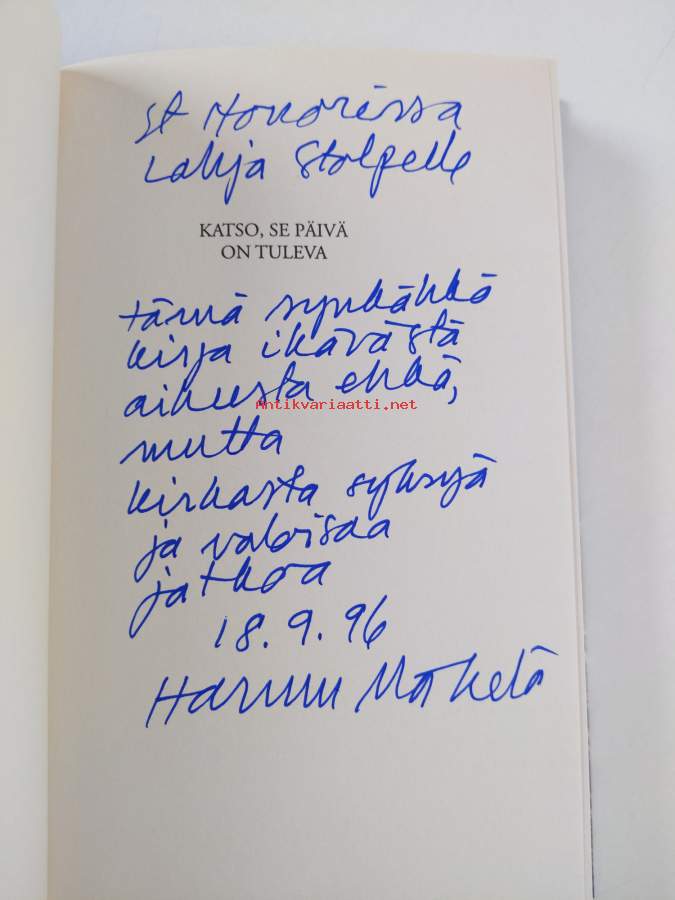 St Honoréssa
Lahja Stolpelle
KATSO, SE PÄIVÄ
ON TULEVA
tämä synkähkö
kirja ikävästä
aiheesta ehkä,
Antikvariaatti.net
mutta
kirkasta syksyä
ja valoisaa
jatkoa
18.9.96
Hannu Mäkelä